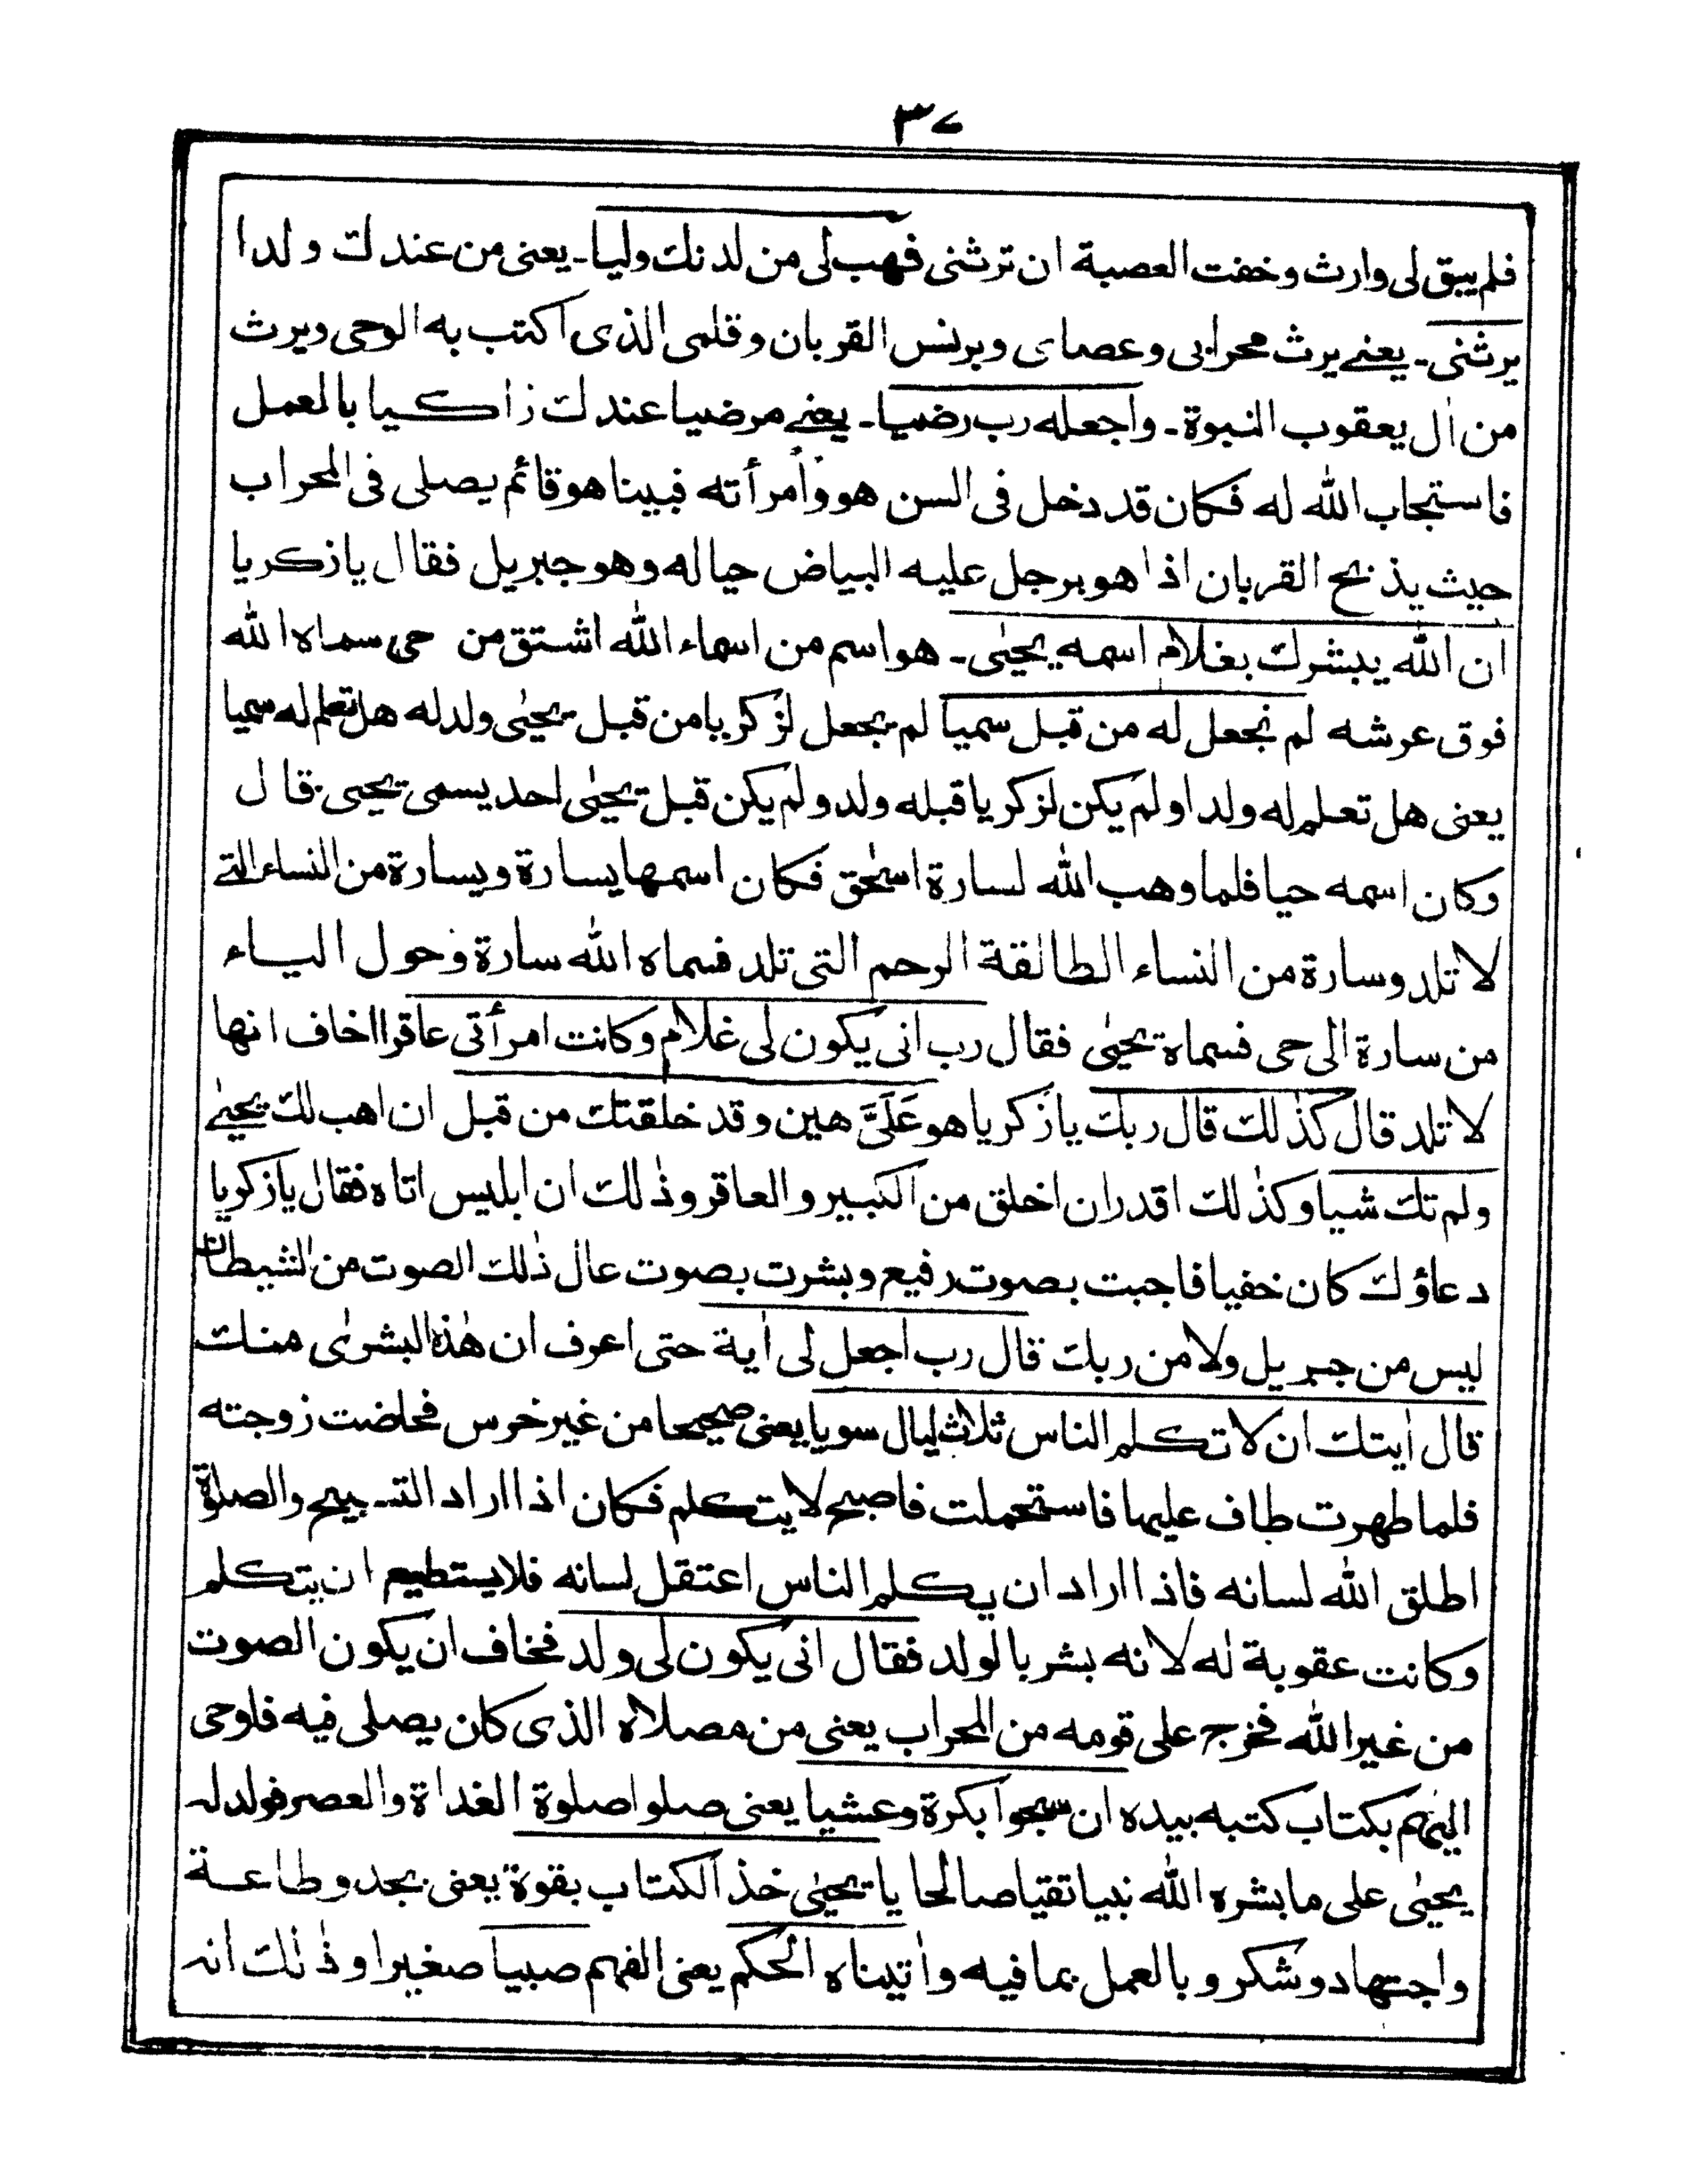 ٣٧
فلم يبق لى وارث وخفت العصبة ان ترثنى فهب لى من لدنك وليا ـ يعنى من عندك ولدا
يرثنى ـ يعنے يرث محرابى وعصاى وبرنس القربان وقلمى الذى اكتب به الوحى ويرث
من اٰل يعقوب النبوة ـ واجعله رب رضيا ـ يعنے مرضيا عندك زاكيا بالعمل
فاستجاب الله له فكان قد دخل فى السن هو وامرأته فبينا هو قائم يصلى فى المحراب
حيث يذبح القربان اذا هو برجل عليه البياض حياله وهو جبريل فقال يازكريا
ان الله يبشرك بغلام اسمه يحيٰى ـ هو اسم من اسماء الله اشتق من حى سماه الله
فوق عرشه لم نجعل له من قبل سميا لم يجعل لزكريا من قبل يحيٰى ولد له هل تعلم له سميا
يعنى هل تعلم له ولدا ولم يكن لزكريا قبله ولد ولم يكن قبل يحيٰى احد يسمى يحيى قال
وكان اسمه حيا فلما وهب الله لسارة اسحٰق فكان اسمها يسارة ويسارة من النساء التے
لا تلد وسارة من النساء الطالقة الرحم التى تلد فسماه الله سارة وحول الياء
من سارة الى حى فسماه يحيٰى فقال رب انى يكون لى غلام وكانت امرأتى عاقرا اخاف انها
لا تلد قال كذٰلك قال ربك يازكريا هو عَلَىَّ هين وقد خلقتك من قبل ان اهب لك يحيٰے
ولم تك شيا وكذٰلك اقدر ان اخلق من الكبير والعاقر وذٰلك ان ابليس اتاه فقال يازكريا
دعاؤك كان خفيا فاجبت بصوت رفيع وبشرت بصوت عال ذٰلك الصوت من الشيطان
ليس من جبريل ولا من ربك قال رب اجعل لى اٰية حتى اعرف ان هٰذه البشرىٰ منك
قال اٰيتك ان لا تكلم الناس ثلاث ليال سويا يعنى صحيحا من غير خرس فحاضت زوجته
فلما طهرت طاف عليها فاستحملت فاصبح لا يتكلم فكان اذا اراد التسبيح والصلوٰة
اطلق الله لسانه فاذا اراد ان يكلم الناس اعتقل لسانه فلا يستطيع ان يتكلم
وكانت عقوبة له لانه بشر بالولد فقال انى يكون لى ولد فخاف ان يكون الصوت
من غير الله فخرج على قومه من المحراب يعنى من مصلاه الذى كان يصلى فيه فاوحى
اليهم بكتاب كتبه بيده ان سبحوا بكرة وعشيا يعنى صلوا صلوة الغداة والعصر فولد له
يحيٰى على ما بشره الله نبيا تقيا صالحا يا يحيٰى خذ الكتاب بقوة يعنى بجد وطاعة
واجتهاد وشكر وبالعمل بما فيه واٰتيناه الحكم يعنى الفهم صبيا صغيرا وذٰلك انه